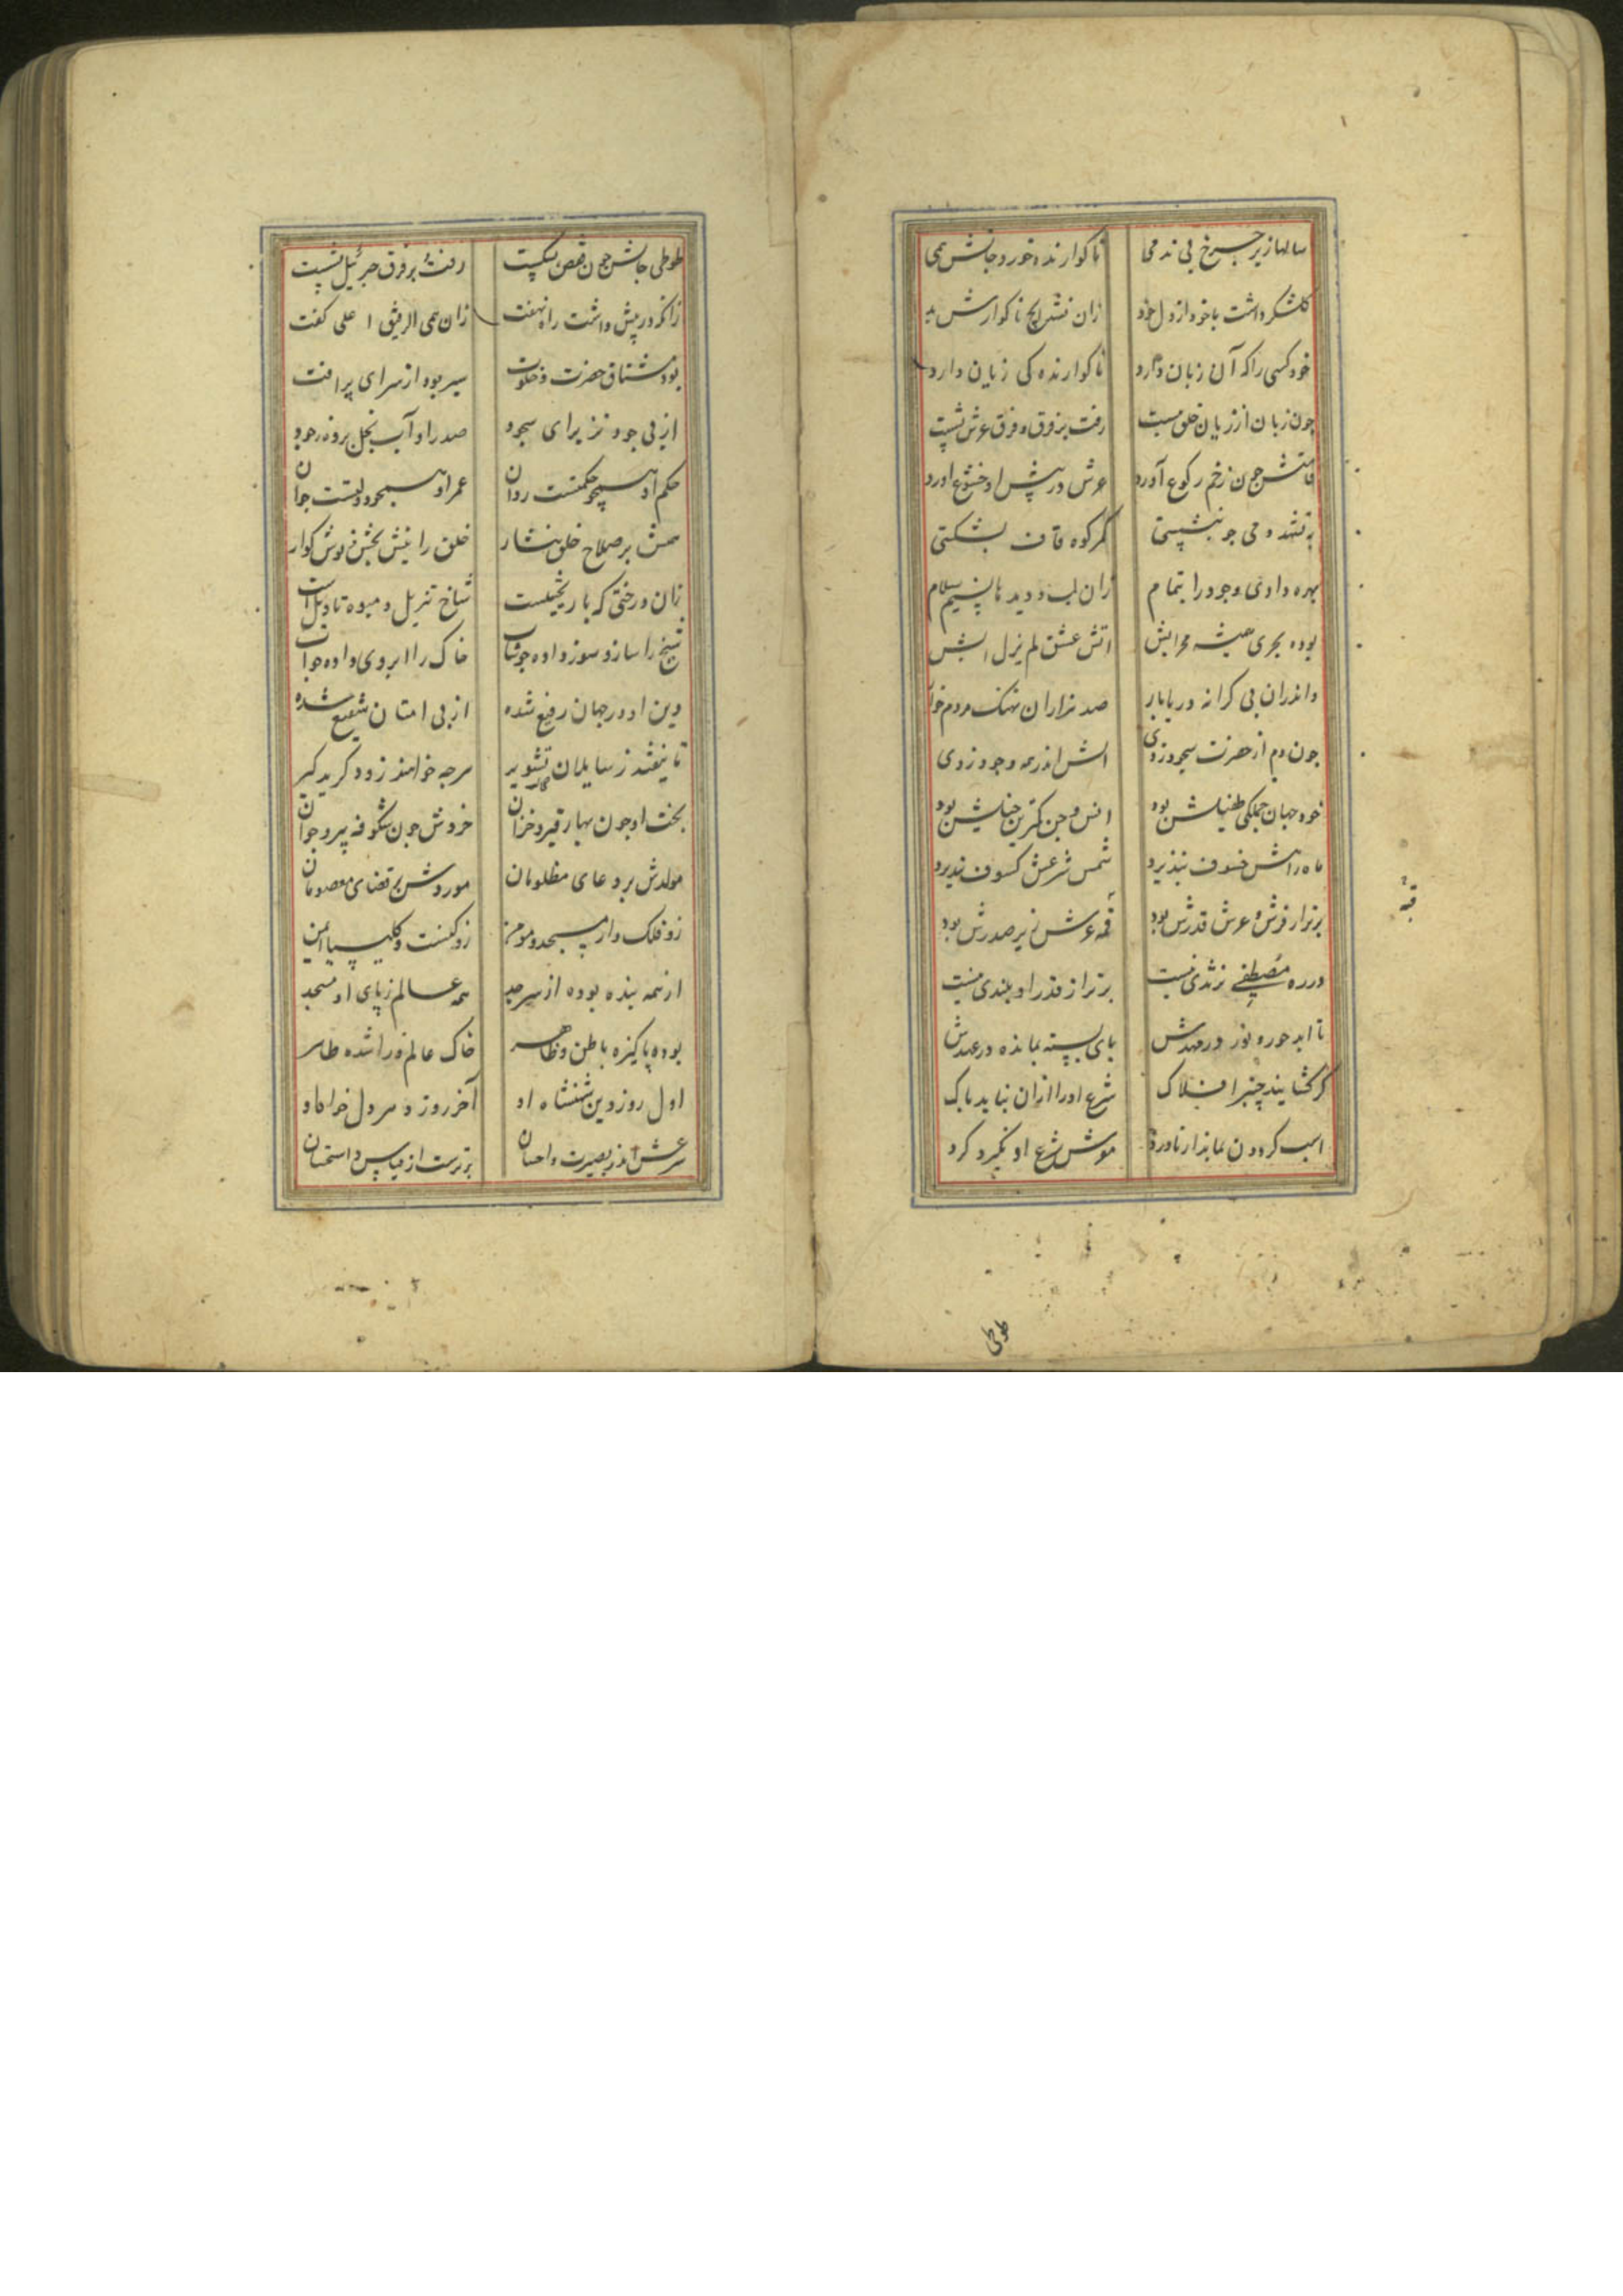 سالها زیر چرخ بی ندمی ناکوارنده خورد جانش همی
کلشکر داشت با خود از دل خود زان نشد هیچ ناکوارش بد
خود کسی را که آن زبان دارد ناکوارنده کی زیان دارد
چون زبان از زیان خلق ببست رفت بر فوق و فرق عرش نشست
قامتش چون ز خم رکوع آورد عرش در پیش او خشوع آورد
به تشهد و می چو بنشستی کمر کوه قاف بشکستی
بهره دادی وجود را بتمام زان لب و دیدها بنسیم سلام
بوده بحری همیشه محرابش اتش عشق لم یزل آبش
واندران بی کرانه دریابار صد هزاران نهنک مردم خوار
چون دم از حضرت سجود زدی اتش اندر همه وجود زدی
خود جهان جملکی طفیلش بود انس و جن کمترین خیلش بود
ماه راهش خسوف نپذیرد شمس شرعش کسوف نپذیرد
برتر از فرش و عرش قدرش بود قبه عرش زیر صدرش بود
قبه
در ره مصطفی نژندی نیست برتر از قدر او بلندی نیست
تا ابد حور و نور در مهدش بای بسته بمانده در عهدش
کر کشایند چنبر افلاک شرع او را ازان نیاید باک
اسب کردون بماند از ناورد موش شرع او نکیرد کرد
طوطی
طوطی جانش چون قفص بشکست رفت و بر فرق جبرئیل نشست
زانکه در پیش داشت راه نهفت زان همی الرفیق ا علی کفت
بود مشتاق حضرت و خلوت سیر بود از سرای پر افت
از پی جود نز برای سجود صدر او آب نخل برونه رجود
حکم او همچو حکمتست روان عمر او همچو دولتست جوان
سمش بر صلاح خلق نثار خلق را نیش بخش نوش کوار
زان درختی که بار نخیلست شاخ تنزیل و میوه تاویل است
تیغ را ساز و سوز داده جوشاب خاک را ابروی داده جواب
دین او در جهان رفیع شده از پی امتان شفیع شده
تا نیفتد ز سایلان تشویر هر چه خواهند زود کرید کیر
بخت او چون بهار قیر و خزان خردش چون شکوفه پیر و جوان
مولدش بر دعای مظلومان موردش بر قضای معصومان
زو فلک وار مسجد و مومن زو کنشت و کلیسیا ایمن
از همه بنده بوده از سر جد همه عالم ز پای او مسجد
بوده پاکیزه باطن و ظاهر خاک عالم ورا شده طاهر
اول روز دین شهنشاه او آخر روز درد دل خواه او
شرعش اندر بصیرت و احسان برترست از قیاس و استحسان